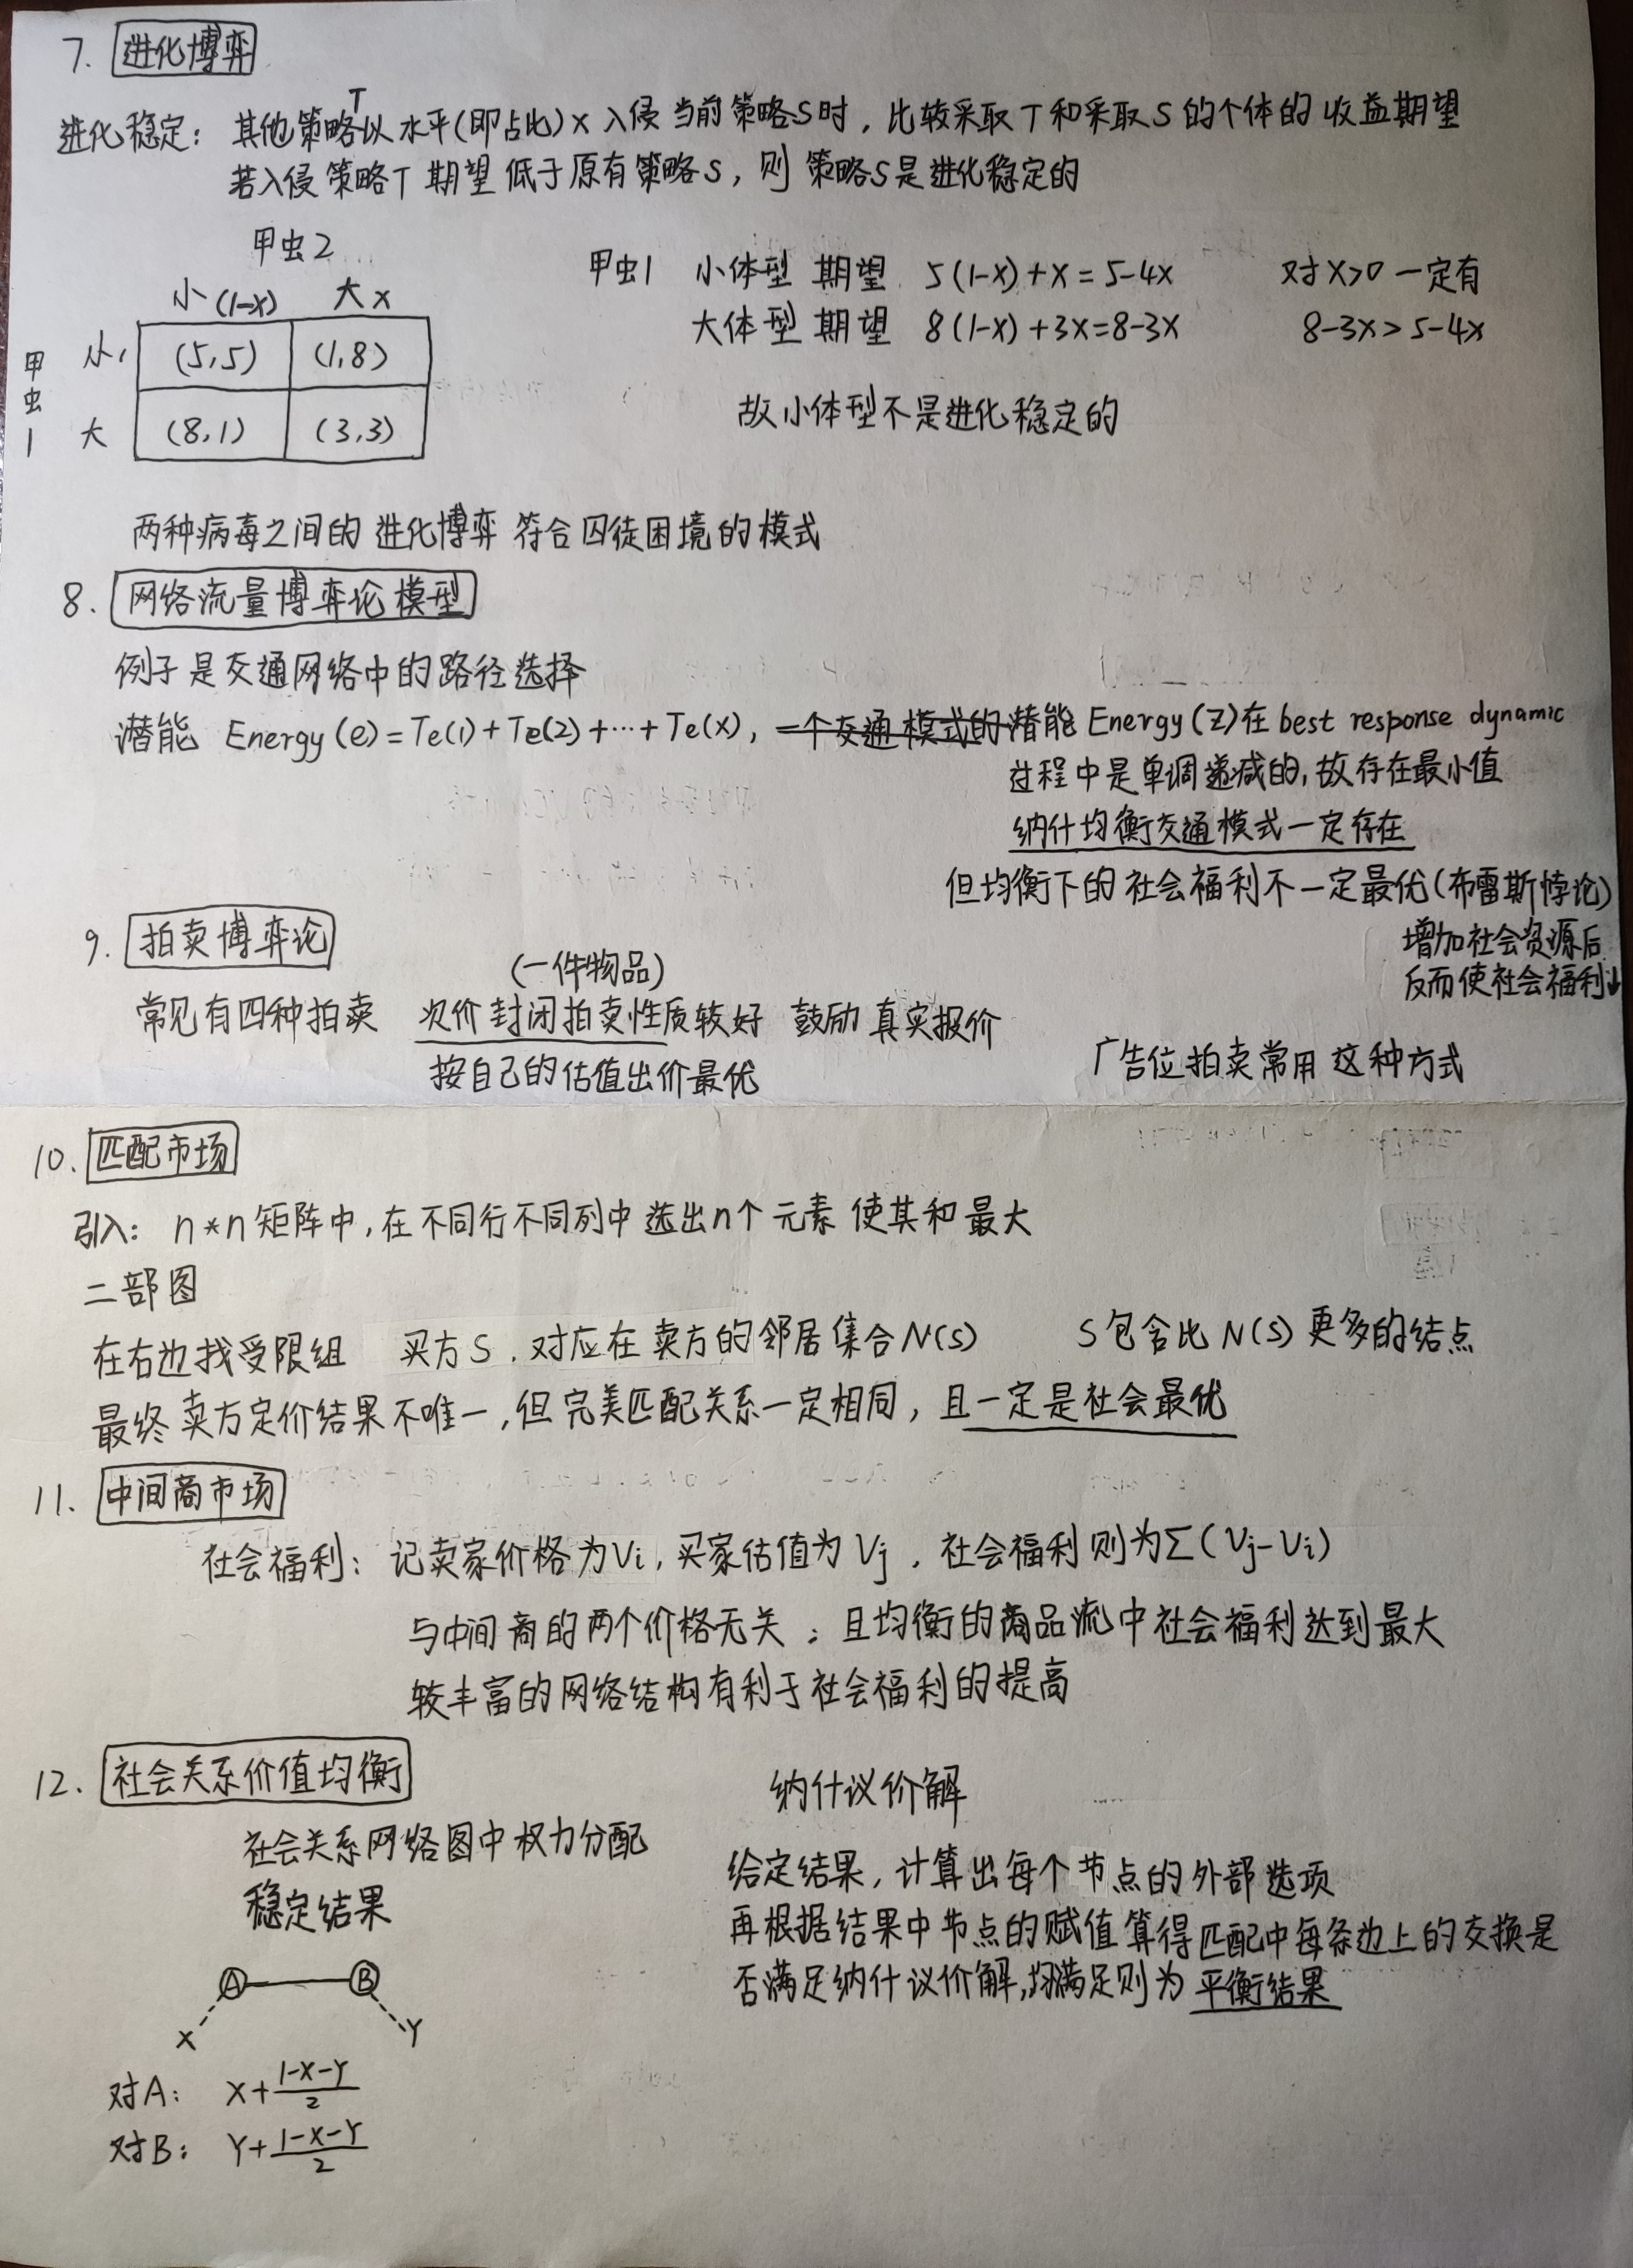 7. 进化博弈
进化稳定：其他策略T以水平(即占比)x入侵当前策略S时，比较采取T和采取S的个体的收益期望
若入侵策略T期望低于原有策略S，则策略S是进化稳定的
甲虫2
小(1-x) 大x
甲虫1
小 (5,5) (1,8)
大 (8,1) (3,3)
甲虫1 小体型期望 5(1-x)+x=5-4x 对x>0一定有
大体型期望 8(1-x)+3x=8-3x 8-3x>5-4x
故小体型不是进化稳定的
两种病毒之间的进化博弈符合囚徒困境的模式
8. 网络流量博弈论模型
例子是交通网络中的路径选择
潜能 Energy(e)=Te(1)+Te(2)+…+Te(x)，一个交通模式的潜能Energy(Z)在best response dynamic
过程中是单调递减的，故存在最小值
纳什均衡交通模式一定存在
但均衡下的社会福利不一定最优(布雷斯悖论)
增加社会资源后
反而使社会福利↓
9. 拍卖博弈论
(一件物品)
常见有四种拍卖 次价封闭拍卖性质较好 鼓励真实报价
按自己的估值出价最优
广告位拍卖常用这种方式
10. 匹配市场
引入：n*n矩阵中，在不同行不同列中选出n个元素使其和最大
二部图
在右边找受限组 买方S，对应在卖方的邻居集合N(S) S包含比N(S)更多的结点
最终卖方定价结果不唯一，但完美匹配关系一定相同，且一定是社会最优
11. 中间商市场
社会福利：记卖家价格为Vi，买家估值为Vj，社会福利则为Σ(Vj-Vi)
与中间商的两个价格无关；且均衡的商品流中社会福利达到最大
较丰富的网络结构有利于社会福利的提高
12. 社会关系价值均衡
社会关系网络图中权力分配
稳定结果
A B
X Y
对A：X+\frac{1-X-Y}{2}
对B：Y+\frac{1-X-Y}{2}
纳什议价解
给定结果，计算出每个节点的外部选项
再根据结果中节点的赋值算得匹配中每条边上的交换是
否满足纳什议价解，均满足则为平衡结果